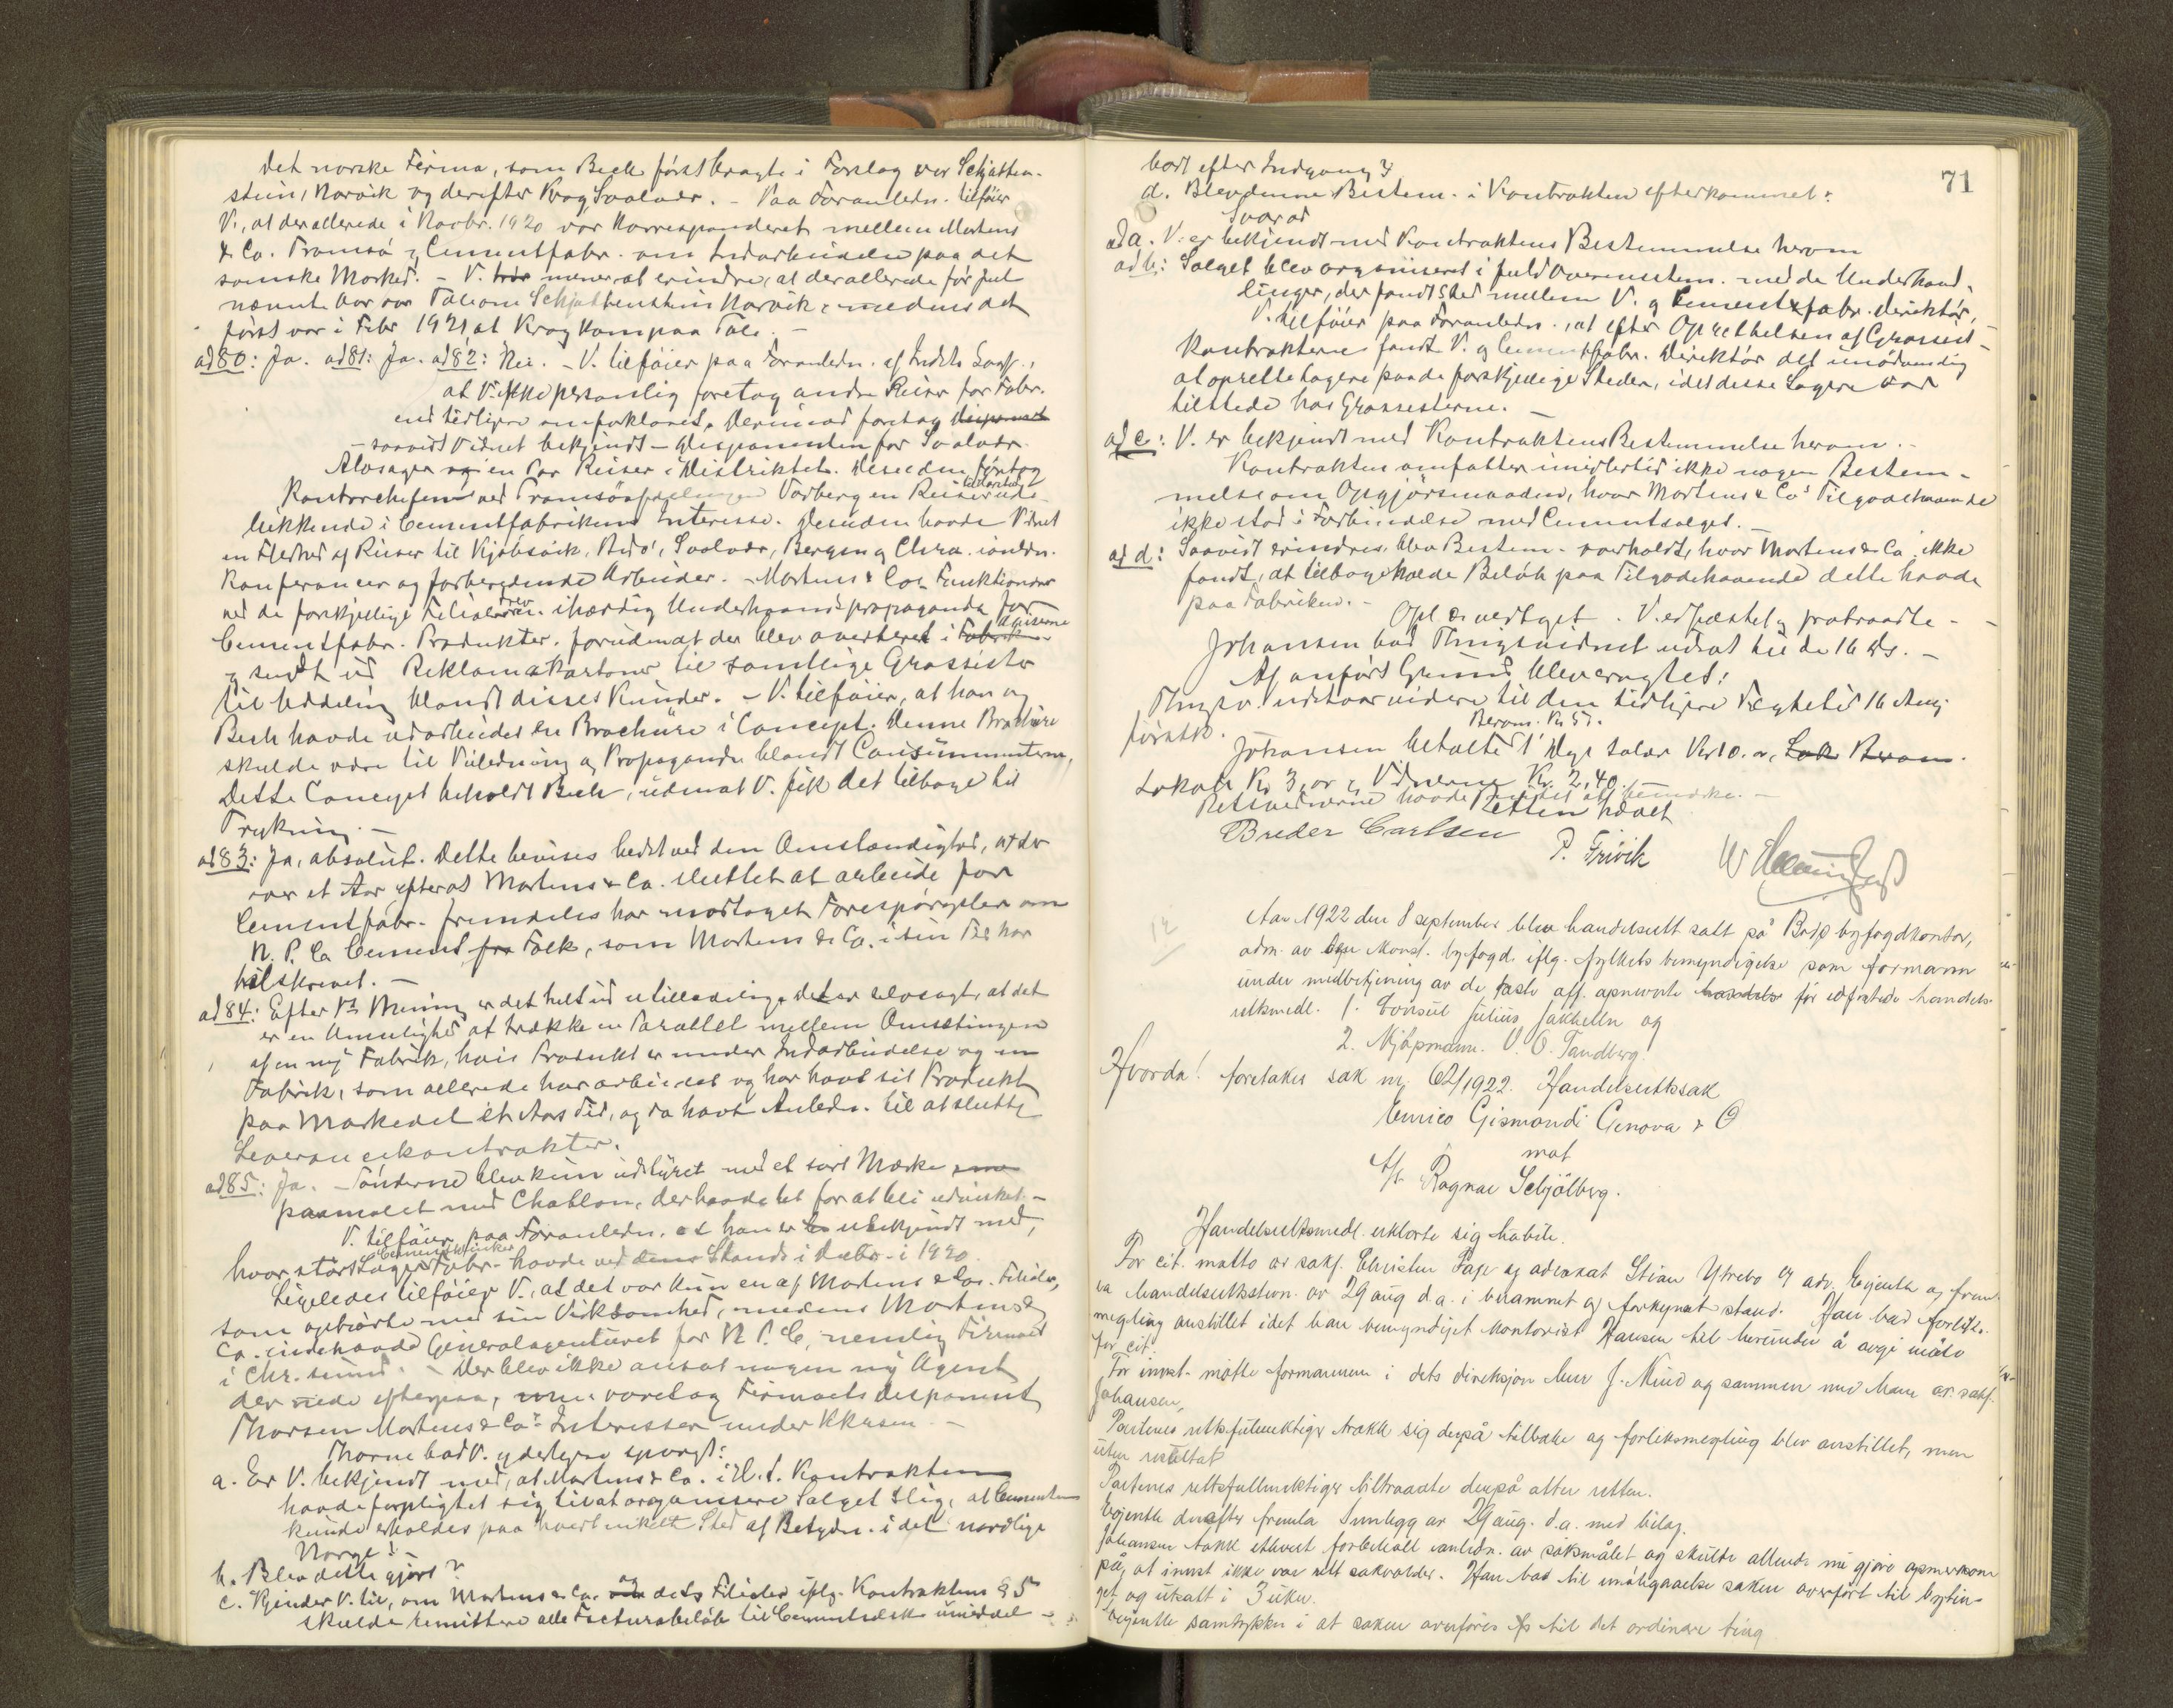 Det norske Firma, som Bech först bragte i Forslag var Schjatten-
stein, Narvik og derefter Krog Svolvær. - Paa Foranledn. tilföier
V., at der allerede i Novbr. 1920 var Korrespanderet mellem Mortens
& Co. Tromsö og Cementfabr. om Indarbeidelse paa det
samske Marked. - V. tror mener at erindre, at der allerede før Jul
nævnte Aar var Tale om Schjattenstein Narvik, medens det
først var i Febr 1921 at Krog kom paa Tale. -
ad 80: Ja. ad 81: Ja. ad 82: Nei. - V. tilföier paa Foranledn. af Indst. Sagf.,
at V. ikke personlig foretog andre Reiser for Fabr.
end tidligere omforklaret. Derimod foretog Disponent
- saavidt Vidnet bekjendt - Disponenten for Svolvær
Avlsager og en Par Reiser i Distriktet. Desuden foretog
Kontorchefen ved Tromsöafdelingen Varberg en Reise ude-
lukkende i Cementfabrikens Interesse. Desuden havde Vidnet
en Flerhed af Reiser til Kjöbsvik, Bodö, Svolvær, Bergen og Chra. i anledn.
Konferancer og forberedende Arbeider. - Mortens & Co's Funktionærer
ved de forskjellige Filialer drev ihærdig Underhaandspropaganda for
Cementfabr. Produkter, forudenat der blev averteret i Fabrikken Aviserne
og sendt ud Reklamekartoner til samtlige Grossister
til Uddeling blandt disses Kunder. - V. tilföier, at han og
Bech havde udarbeidet en Brochüre i Concept. Denne Brochüre
skulde være til Veiledning og Propaganda blandt Consumenterne,
Dette Concept beholdt Bech, uden at V. fik det tilbage til
Trykning. -
ad 83: Ja, absolut. Dette bevises bedst ved den Omstændighed, at der
var et Aar efterat Mortens & Co. sluttet at arbeide for
Cementfabr. fremdeles har modtaget Forespörgsler om
N. P. C. Cement fra Folk, som Mortens & Co. i sin Tid har
tilskrevet. -
ad 84: Efter Vs Mening er det helt ud utilladelig, det er selvsagt, at det
er en Umulighed at trække en Parallel mellem Omsetningen
af en ny Fabrik, hvis Produkt er under Indarbeidelse og en
Fabrik, som allerede har arbeidet og har havt sit Produkt
paa Markedet et Aars Tid, og da havt Anledn. til at slutte
Leverancekontrakter.
ad 85: Ja. - Tönderne blev kun udstyret med et sort Mærke som
paamalet med Chablon, der havde let for at bli udvisket. -
V. tilföier paa Foranledn. at han er ubekjendt med,
hvor stort Lager Cementklinker Fabr. havde ved dens Stands i Decbr. i 1920.
Ligeledes tilföier V., at det var kun en af Mortens & Cos. Filialer,
som ophörte med sin Virksomhed, medens Mortens &
Co. indehavde Generalagenturet for N. P. C, nemlig Firmaet
i Chr.sund. - Der blev ikke ansat nogen ny Agent
der nede efterpaa, men varetog Firmaets Disponent
Thorsen Mortens & Co's Interesser under Krisen. -
Thorne bad V. yderligere spurgt:
a. Er V. bekjendt med, at Mortens & Co. i H. t. Kontrakten
havde forpligtet sig til at organisere Salget slig, at Cementen
kunde erholdes paa hvert enkelt Sted af Betydn. i det nordlige
Norge? -
b. Blev dette gjort?
c. Kjender V. til, om Mortens & Co. og dets Filialer iflg. Kontraktens § 5
skulde remittere alle Facturabeløb til Cementselsk. umiddel-
71
bart efter Indgang?
d. Blev denne Bestem. i Kontrakten efterkommet?
Svar ad
ad a. V. er bekjendt med Kontraktens Bestemmelse herom
ad b: Salget blev organiseret i fuld Overensstem. med de Underhand-
linger, der fandt Sted mellem V. og Cementfabr. direktør.
V. tilföier paa Foranledn., at efter Oprettelsen af Grossist-
Kontrakterne fandt V. og Cementfabr. Direktør det unödvendig
at oprette Lagere paa de forskjellige Steder, idet disse Lagere var
tilstede hos Grossisterne. -
ad c: V. er bekjendt med Kontraktens Bestemmelse herom. -
Kontrakten omfatter imidlertid ikke nogen Bestem-
melse om Opgjörsmaaden, hvor Mortens & Co's Tilgodehavende
ikke stod i Forbindelse med Cementsalget. -
ad d: Saavidt erindres, blev Bestem. overholdt, hvor Mortens & Co. ikke
fandt, at tilbageholde Beløb paa Tilgodehavende dette havde
paa Fabriken. -
Opl. & vedtaget. V. edfæstet og fratraadte. -
Johansen bad Thingsvidnet udsat til de 16 ds. -
Af anført Grund blev eragtet:
Thingsv. udstaar videre til den tidligere Vegtetid 16 Aug
førstk.
Johansen betalte 1 Dags Salær Kr 10. or, Lok Beram.
Beram. Kr 5.
Lokale Kr 3, or og Vidnerne Kr. 2,40.
Retsvidnerne havde Intet at bemærke. -
Retten hævet
Breder Carlsen P. Trivik
12
Aar 1922 den 8 september blev handelsrett satt på Bodø byfogdkontor,
adm. av konst. byfogd iflg. fylkets bemyndigelse som formann
under medbetjening av de faste off. opnevnte handels før edfæstede handels-
rettsmedl. 1. Consul Julius Jakhelln og
2. Kjøpmann. O. Tandberg.
Hvorda! foretakes sak nr 62/1922. Handelsrettssak
Enrico Gismondi Genova & O
mot
A/s Ragnar Schjölberg.
Handelsrettsmedl. erklærte sig habile.
For cit. møtte or sakf. Christen Page og advokat Stian Ytrebø og adv. Eigenth og frem-
la handelsrettsstevn. av 29 aug d.a. i beramnet og forkynt stand. Han bad forliks-
megling anstillet idet han bemyndiget kontorist Hansen til herunder å avgi møte
for cit.
For innst. møtte formannen i dets direksjon herr J. Mind og sammen med ham or. sakf.
Johansen,
Partenes rettsfullmektiger trakk sig derpå tilbake og forliksmegling blev anstillet, men
uten resultat
Partenes rettsfullmektiger tiltraadte derpå atter retten.
Eigenth derefter fremla Innlegg av 29 aug. d.a. med bilag.
Johansen tokk ethvert forbehold i anledn. av søksmålet og skulde allerede nu gjøre opmerksom
på, at innst ikke var rett saksvolder. Han bad til imøtegaaelse saken overført til bytin-
get og utsatt i 3 uker.
Eigenth samtykker i at saken overføres til det ordinære ting